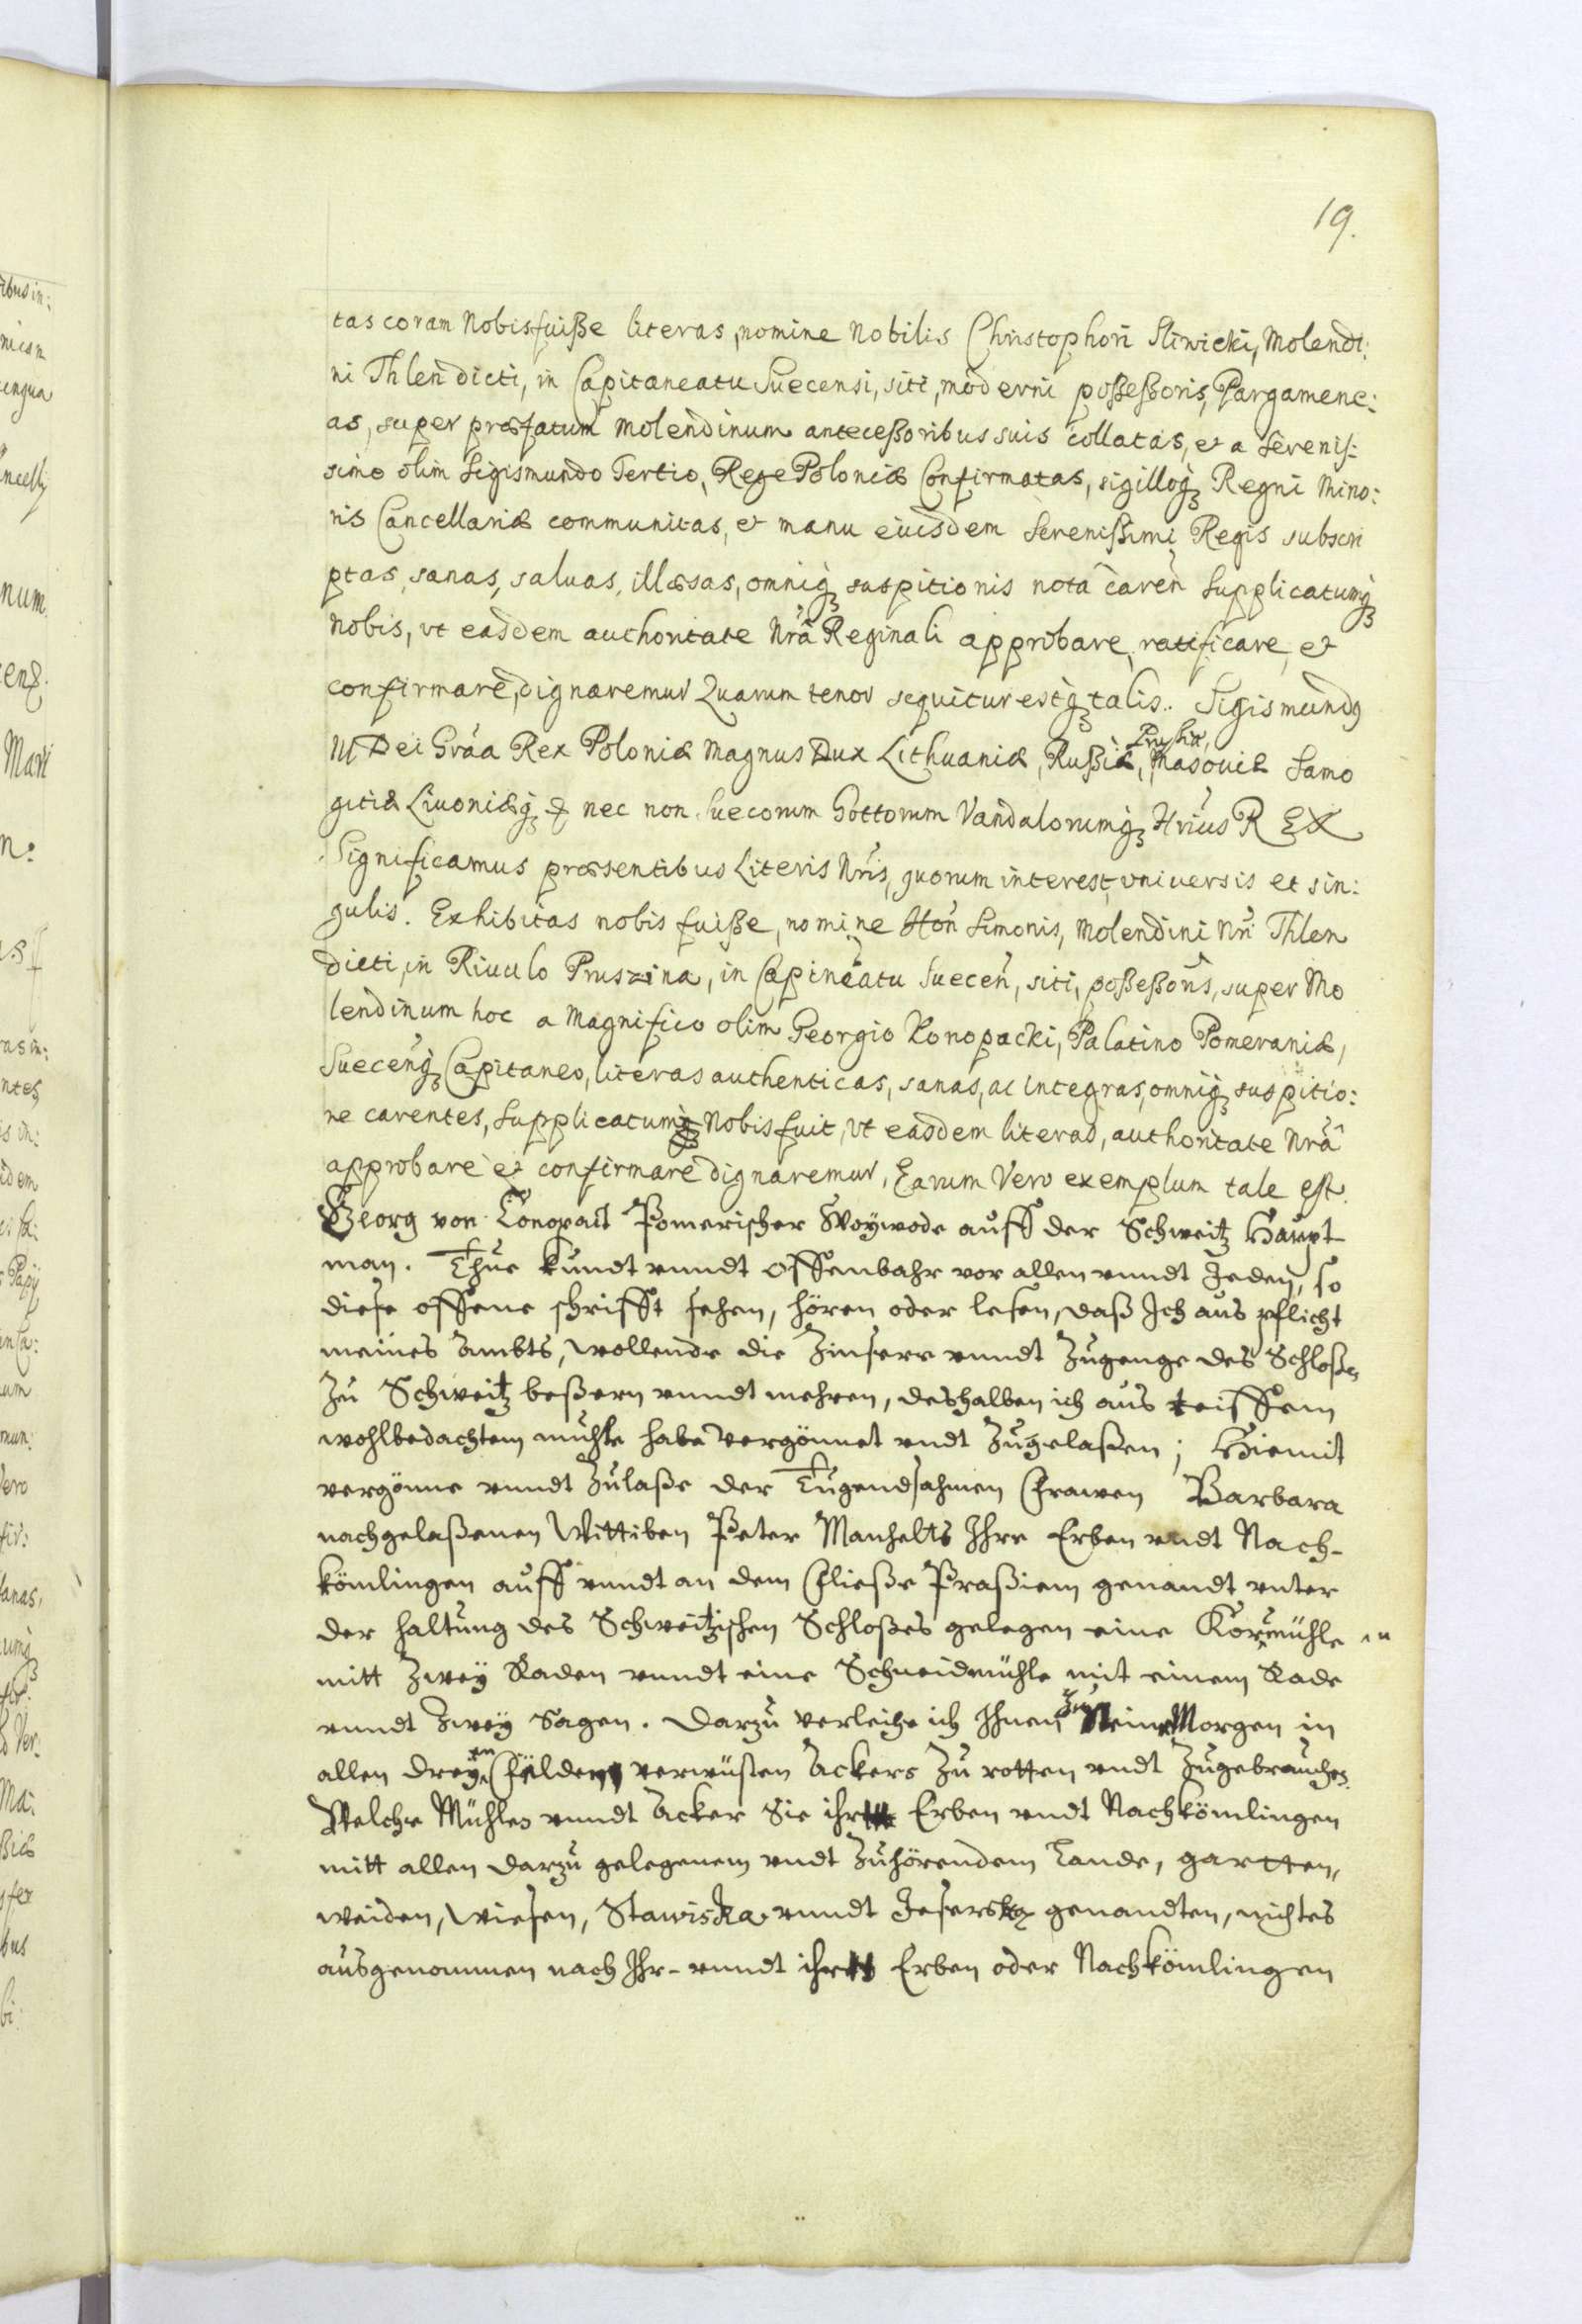 19.
tas coram Nobis fuiße literas, nomine Nobilis Christophori Sliwicki, Molendi:
ni Thlen dicti, in Capitaneatu Suecensi, siti, moderni poßeßoris, Pargamene:
as, super præfatum Molendinum anteceßoribus suis collatas, et a Serenis:
simo olim Sigismundo Tertio, Rege Poloniæ Confirmatas, sigilloq₃ Regni Mino:
ris Cancellariæ communitas, et manu eiusdem Serenißimi Regis subscri
ptas, sanas, saluas, illæsas, omniq₃ suspitionis nota caren̄ Supplicatumq₃
Nobis, vt easdem authoritate Nr̄a Reginali approbare, ratificare, et
confirmare, dignaremur Quarum tenor sequitur estq₃ talis. Sigismundq
III Dei Gr̄aa Rex Poloniæ Magnus Dux Lithuaniæ, Rußiæ, Prußiæ, Masouiæ Samo
gitiæ Liuoniæq₃ & nec non Suecorum Gottorum Vandalorumq₃ Hr̄ius REX
Significamus præsentibus Literis Nr̄is, quorum interest, vniuersis et sin:
gulis. Exhibitas nobis fuiße, nomine Hon̄ Simonis, Molendini Nr̄i Thlen
dicti, in Riuulo Pruszina, in Capineatu Suecen̄, siti, poßeßoris, super Mo
lendinum hoc a Magnifico olim Georgio Konopacki, Palatino Pomeraniæ,
Suecenq₃ Capitaneo, literas authenticas, sanas, ac integras, omniq₃ suspitio:
ne carentes, Supplicatumq₃ Nobis fuit, vt easdem literas, authoritate Nr̄a
approbare et confirmare dignaremur, Earum Vero exemplum tale est.
Georg von Conopait Pomerischer Woywode auff der Schweitz Haupt
man. Thue kundt vnndt offenbahr vor allen vnndt Jeden, so
diese offene schrifft sehen, hören oder lesen, daß Ich aus pflicht
meines Ambts, wollende die Zinsere vnndt Zugenge des Schloßes
Zu Schweitz beßern vnndt mehren, deshalben ich aus teiffem
wohlbedachtem muhte habe vergönnet vndt Zugelaßen; Hiemit
vergönne vnndt Zulaße der Tugendsahmen Frawen Barbara
nachgelaßenen Wittiben Peter Manhelts Ihre Erben vndt Nach-
kömlingen auff vnndt an dem Fließe Praßiem genandt vnter
der haltung des Schweitzischen Schloßes gelegen eine Kornmühle
mitt Zwey Raden vnndt eine Schneidmühle mit einem Rade
vnndt Zwey Sagen. Darzu verleihe ich Ihnen Morgen in
allen dreyen Felden verwüsten Ackers Zu rotten vndt Zugebrauchen.
Welche Mühlen vnndt Acker Sie ihre Erben vndt Nachkömlingen
mitt allen darzu gelegenem vndt Zuhörendem Lande, gartten,
weiden, Wiesen, Stawiska vnndt genandten, nichtes
ausgenommen nach Ihr- vnndt ihre Erben oder Nachkömlingen